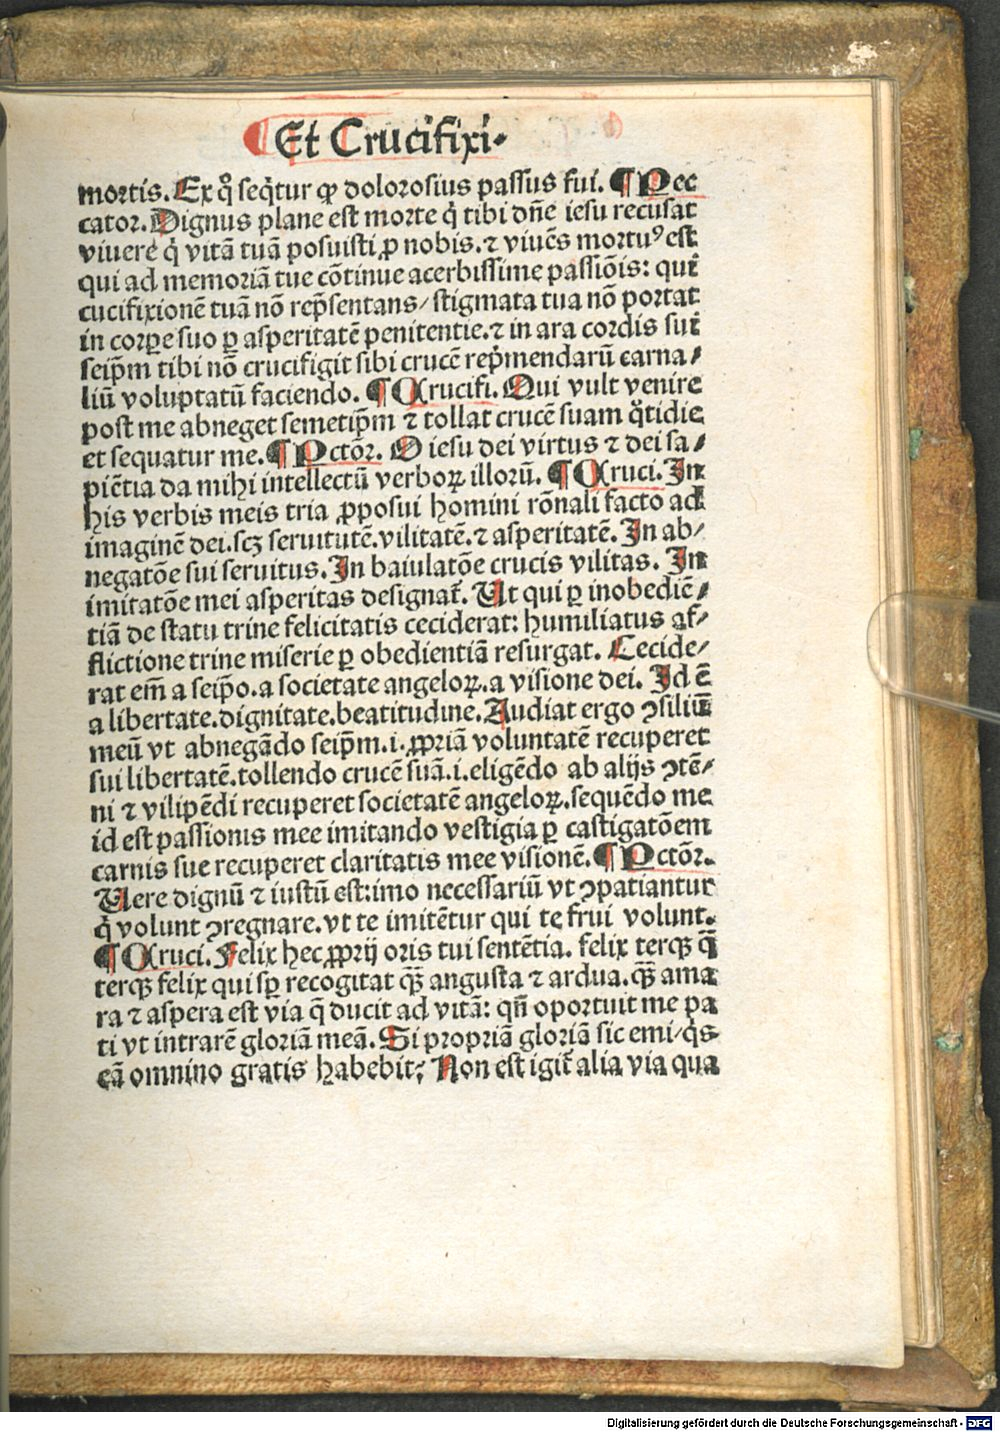 ¶ Et Crucifixi.
mortis. Ex qͦ seqͥtur ꝙ dolorosius passus fui. ¶ Pec
cator. Dignus plane est morte qͥ tibi dn̄e iesu recusat
viuere qͥ vitā tuā posuisti ꝓ nobis. ⁊ viuēs mortuꝰ est
qui ad memoriā tue cōtinue acerbissime passiōis: qui
cucifixionē tuā nō rep̄sentans / stigmata tua nō portat
in corꝑe suo ꝑ asperitatē penitentie. ⁊ in ara cordis sui
seip̄m tibi nō crucifigit sibi crucē repͥmendarū carna⸗
liū voluptatū faciendo. ¶ Crucifi. Qui vult venire
post me abneget semetip̄m ⁊ tollat crucē suam qͦtidie
et sequatur me. ¶ Pctōr. O iesu dei virtus ⁊ dei sa⸗
piētia da mihi intellectū verboꝝ illorū. ¶ Cruci. In
his verbis meis tria ꝓposui homini rōnali facto ad
imaginē dei. scꝫ seruitutē. vilitatē. ⁊ asperitatē. In ab⸗
negatōe sui seruitus. In baiulatōe crucis vilitas. In
imitatōe mei asperitas designat̄. Ut qui ꝑ inobediē⸗
tiā de statu trine felicitatis ceciderat: humiliatus af⸗
flictione trine miserie ꝑ obedientiā resurgat. Cecide⸗
rat em̄ a seip̄o. a societate angeloꝝ. a visione dei. Id ē
a libertate. dignitate. beatitudine. Audiat ergo ꝯsiliū
meū vt abnegādo seip̄m. i. ꝓpriā voluntatē recuperet
sui libertatē. tollendo crucē suā. i. eligēdo ab alijs ꝯtē⸗
ni ⁊ vilipēdi recuperet societatē angeloꝝ. sequēdo me
id est passionis mee imitando vestigia ꝑ castigatōem
carnis sue recuperet claritatis mee visionē. ¶ Pctōr.
Uere dignū ⁊ iustū est: imo necessariū vt ꝯpatiantur
qͥ volunt ꝯregnare. vt te imitētur qui te frui volunt.
¶ Cruci. Felix hec ꝓprij oris tui sentētia. felix terqꝫ q̄
terqꝫ felix qui sꝑ recogitat qꝫ̄ angusta ⁊ ardua. qꝫ̄ ama
ra ⁊ aspera est via q̄ ducit ad vitā: qn̄ oportuit me pa
ti vt intrarē gloriā meā. Si propriā gloriā sic emi / qͥs
eā omnino gratis habebit; Non est igit̄ alia via qua
Digitalisierung gefördert durch die Deutsche Forschungsgemeinschaft - DFG